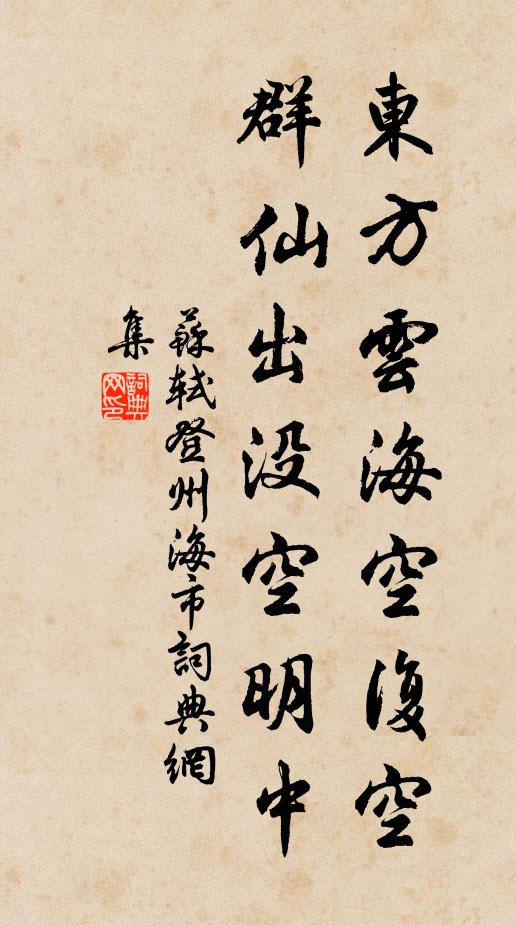 東方雲海空復空
群仙出没空明中
蘇軾登州海市詞典網
集
詞典
网印